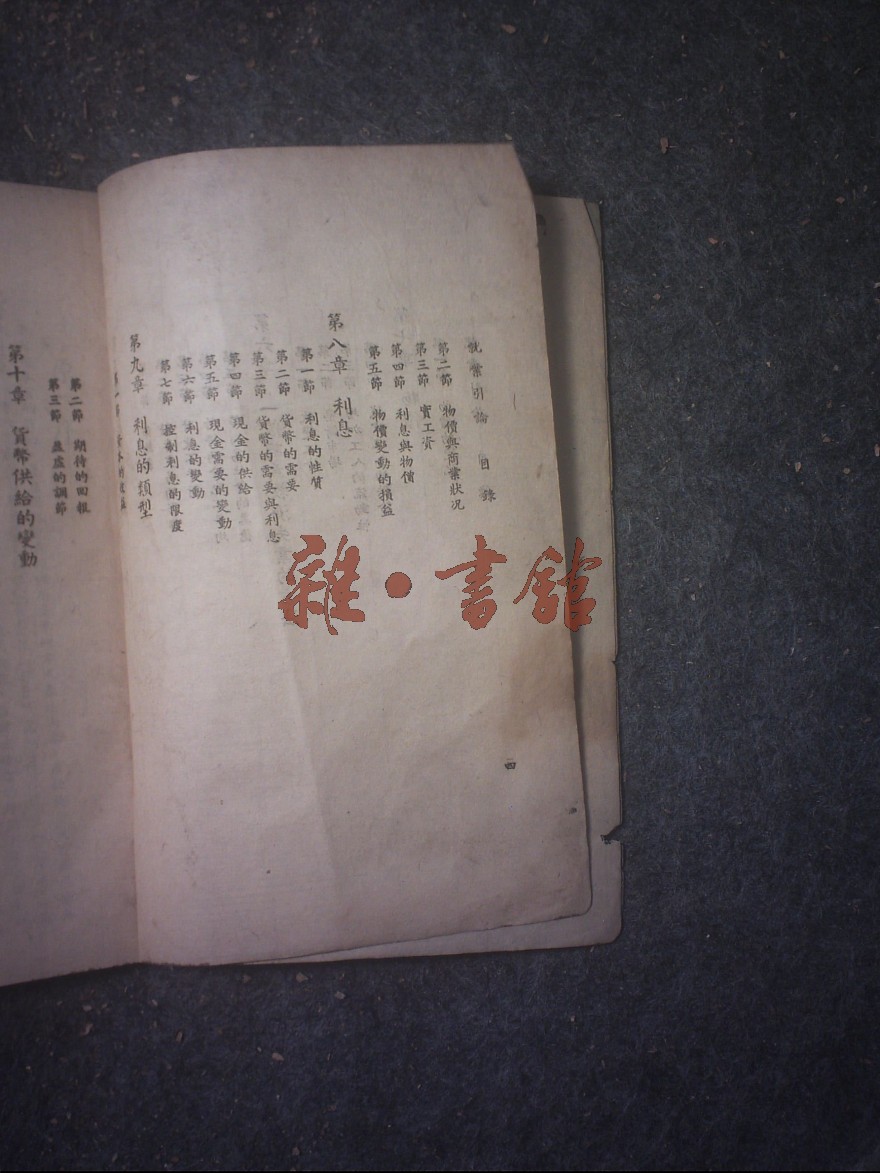 就業引論 目錄
第二節 物價與商業狀况
第三節 實工資
第四節 利息與物價
第五節 物價變動的損益
第八章 利息
第一節 利息的性質
第二節 貨幣的需要
第三節 貨幣的需要與利息
第四節 現金的供給
第五節 現金需要的變動
第六節 利息的變動
第七節 控制利息的限度
第九章 利息的類型
四
第二節 期待的回報
第三節 盈虛的調節
第十章 貨幣供給的變動
雜·書館